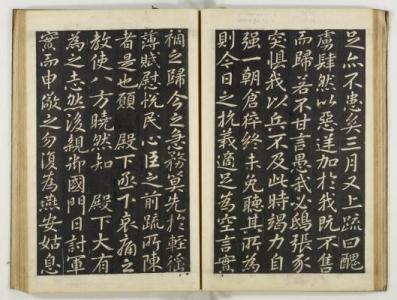 足亦不患矣三月又上疏曰醜
虜肆然以惡逆加於我既不售
而歸若不甘言愚我必鴟張豕
突惧我以兵不及此時竭力自
强一朝倉猝終未免聽其所為
則今日之抗義適足為空言實
禍之歸今之急務莫先於輕徭
薄賦慰悅民心臣之前疏所陳
者是也願 殿下亟下哀痛之
教使八方曉然知 殿下大有
為之志然後親御國門日討軍
實而申儆之勿復為燕安姑息